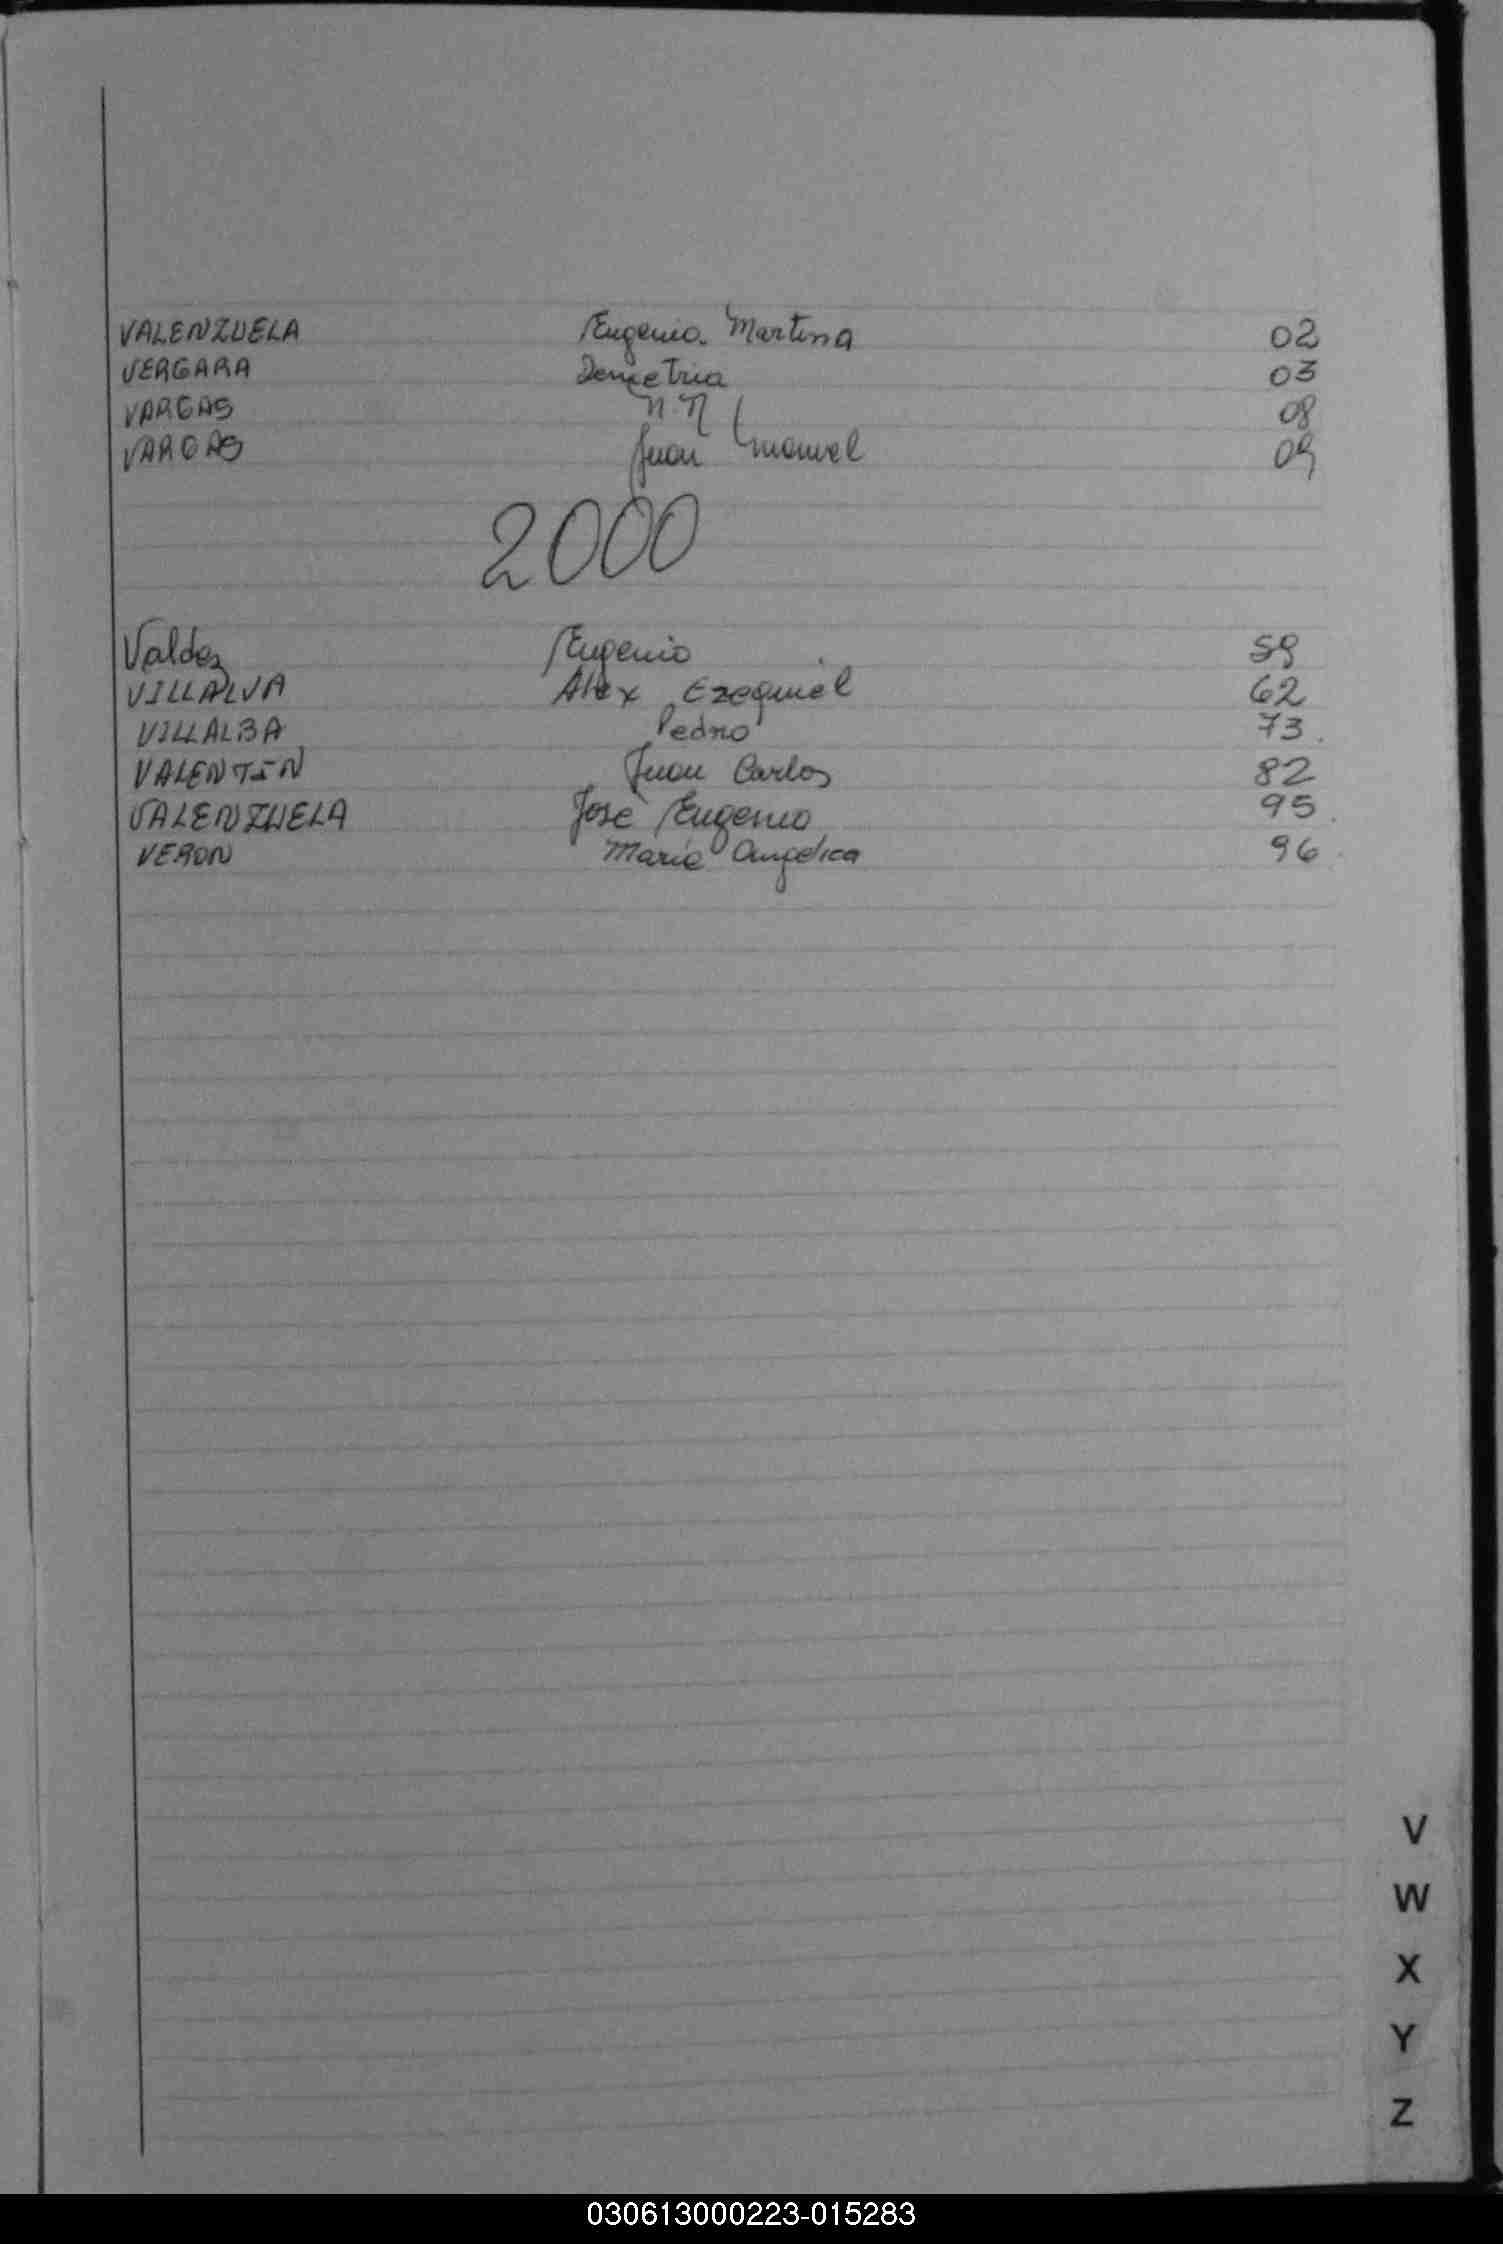 VALENZUELA Eugenio. Martina 02
VERGARA Demetria 03
VARGAS N.N 08
VARGAS Juan Manuel 09
2000
Valdez Eugenio 59
VILLALVA Alex Ezequiel 62
VILLALBA Pedro 73.
VALENTIN Juan Carlos 82
VALENZUELA José Eugenio 95.
VERON Maria Angelica 96.
V
W
X
Y
Z
030613000223-015283